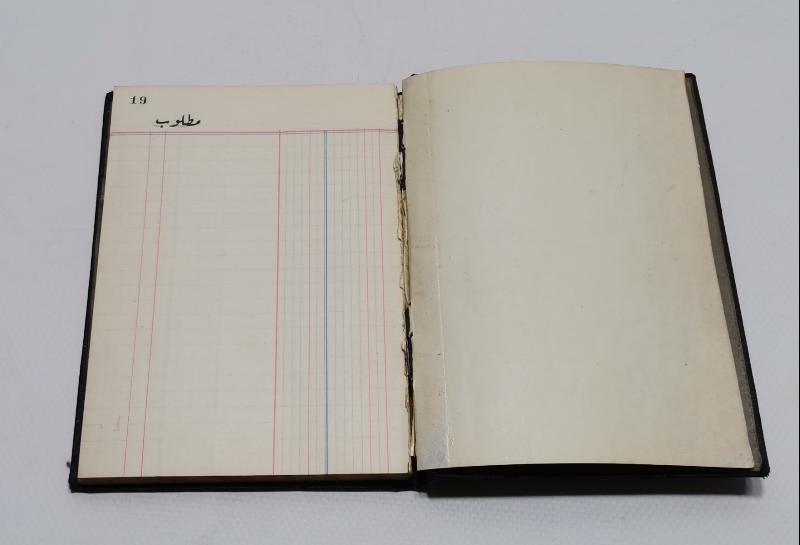 19
مطلوب